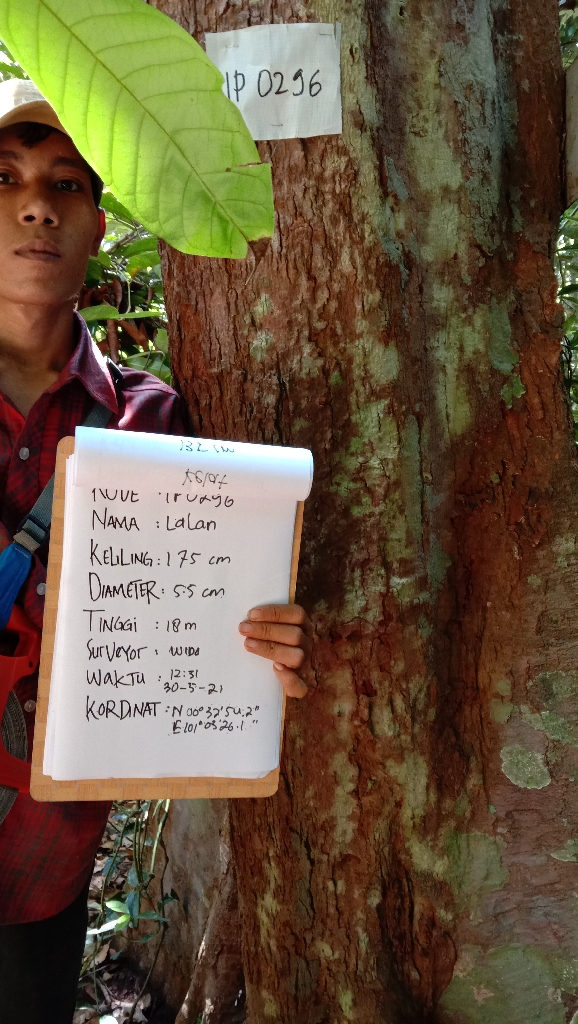 IP 0296
KODE : IP0296
NAMA : Lalan
KELILING : 175 cm
DIAMETER : 5.5 cm
TINGGI : 18 m
SURVEYOR : WIDO
WAKTU : 12:31
30-5-21
KORDNAT : N 00°32'54,2"
E101°03'26.1"